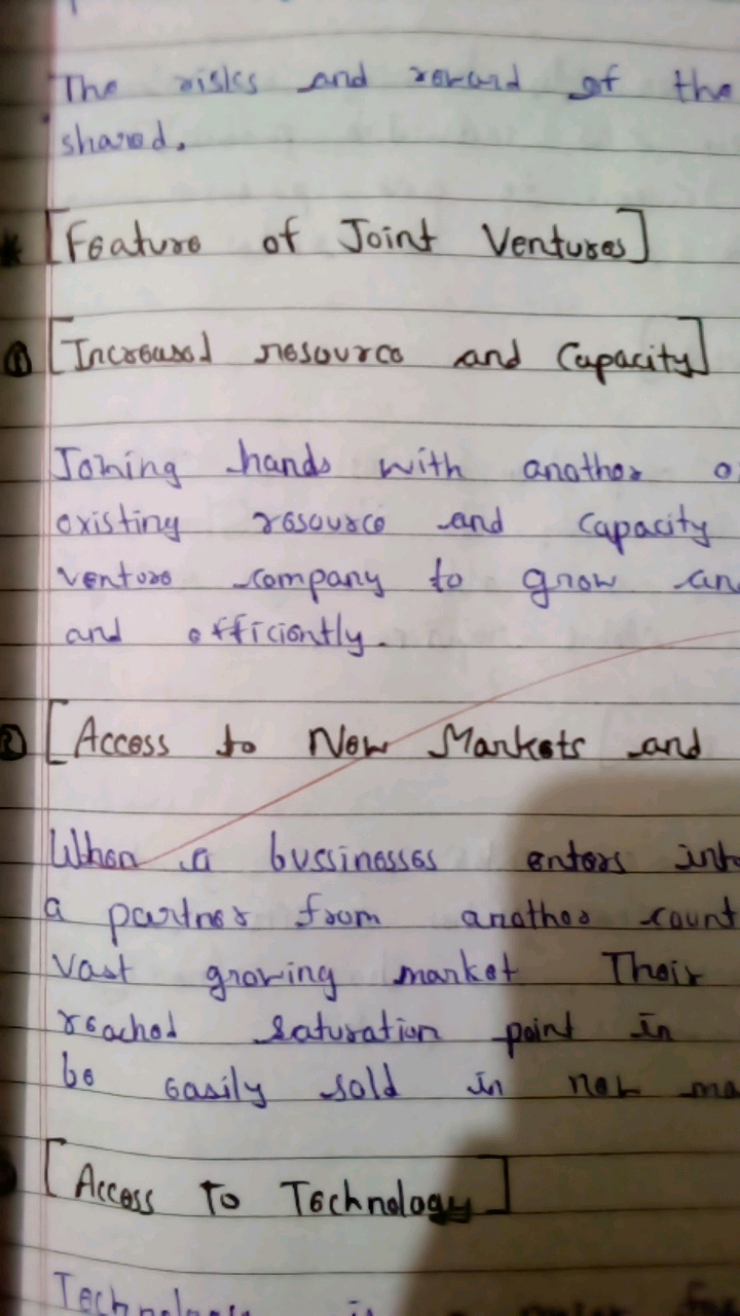 The risks and reward of the
shared.
[Feature of Joint Ventures]
① [Increased resource and Capacity]
Joining hands with another
existing resource and capacity
venture company to grow
and efficiently.
② [Access to New Markets and
When a bussinesses enters
a partner from another
Vast growing market Their
reached saturation point in
be easily sold in new
[Access To Technology]